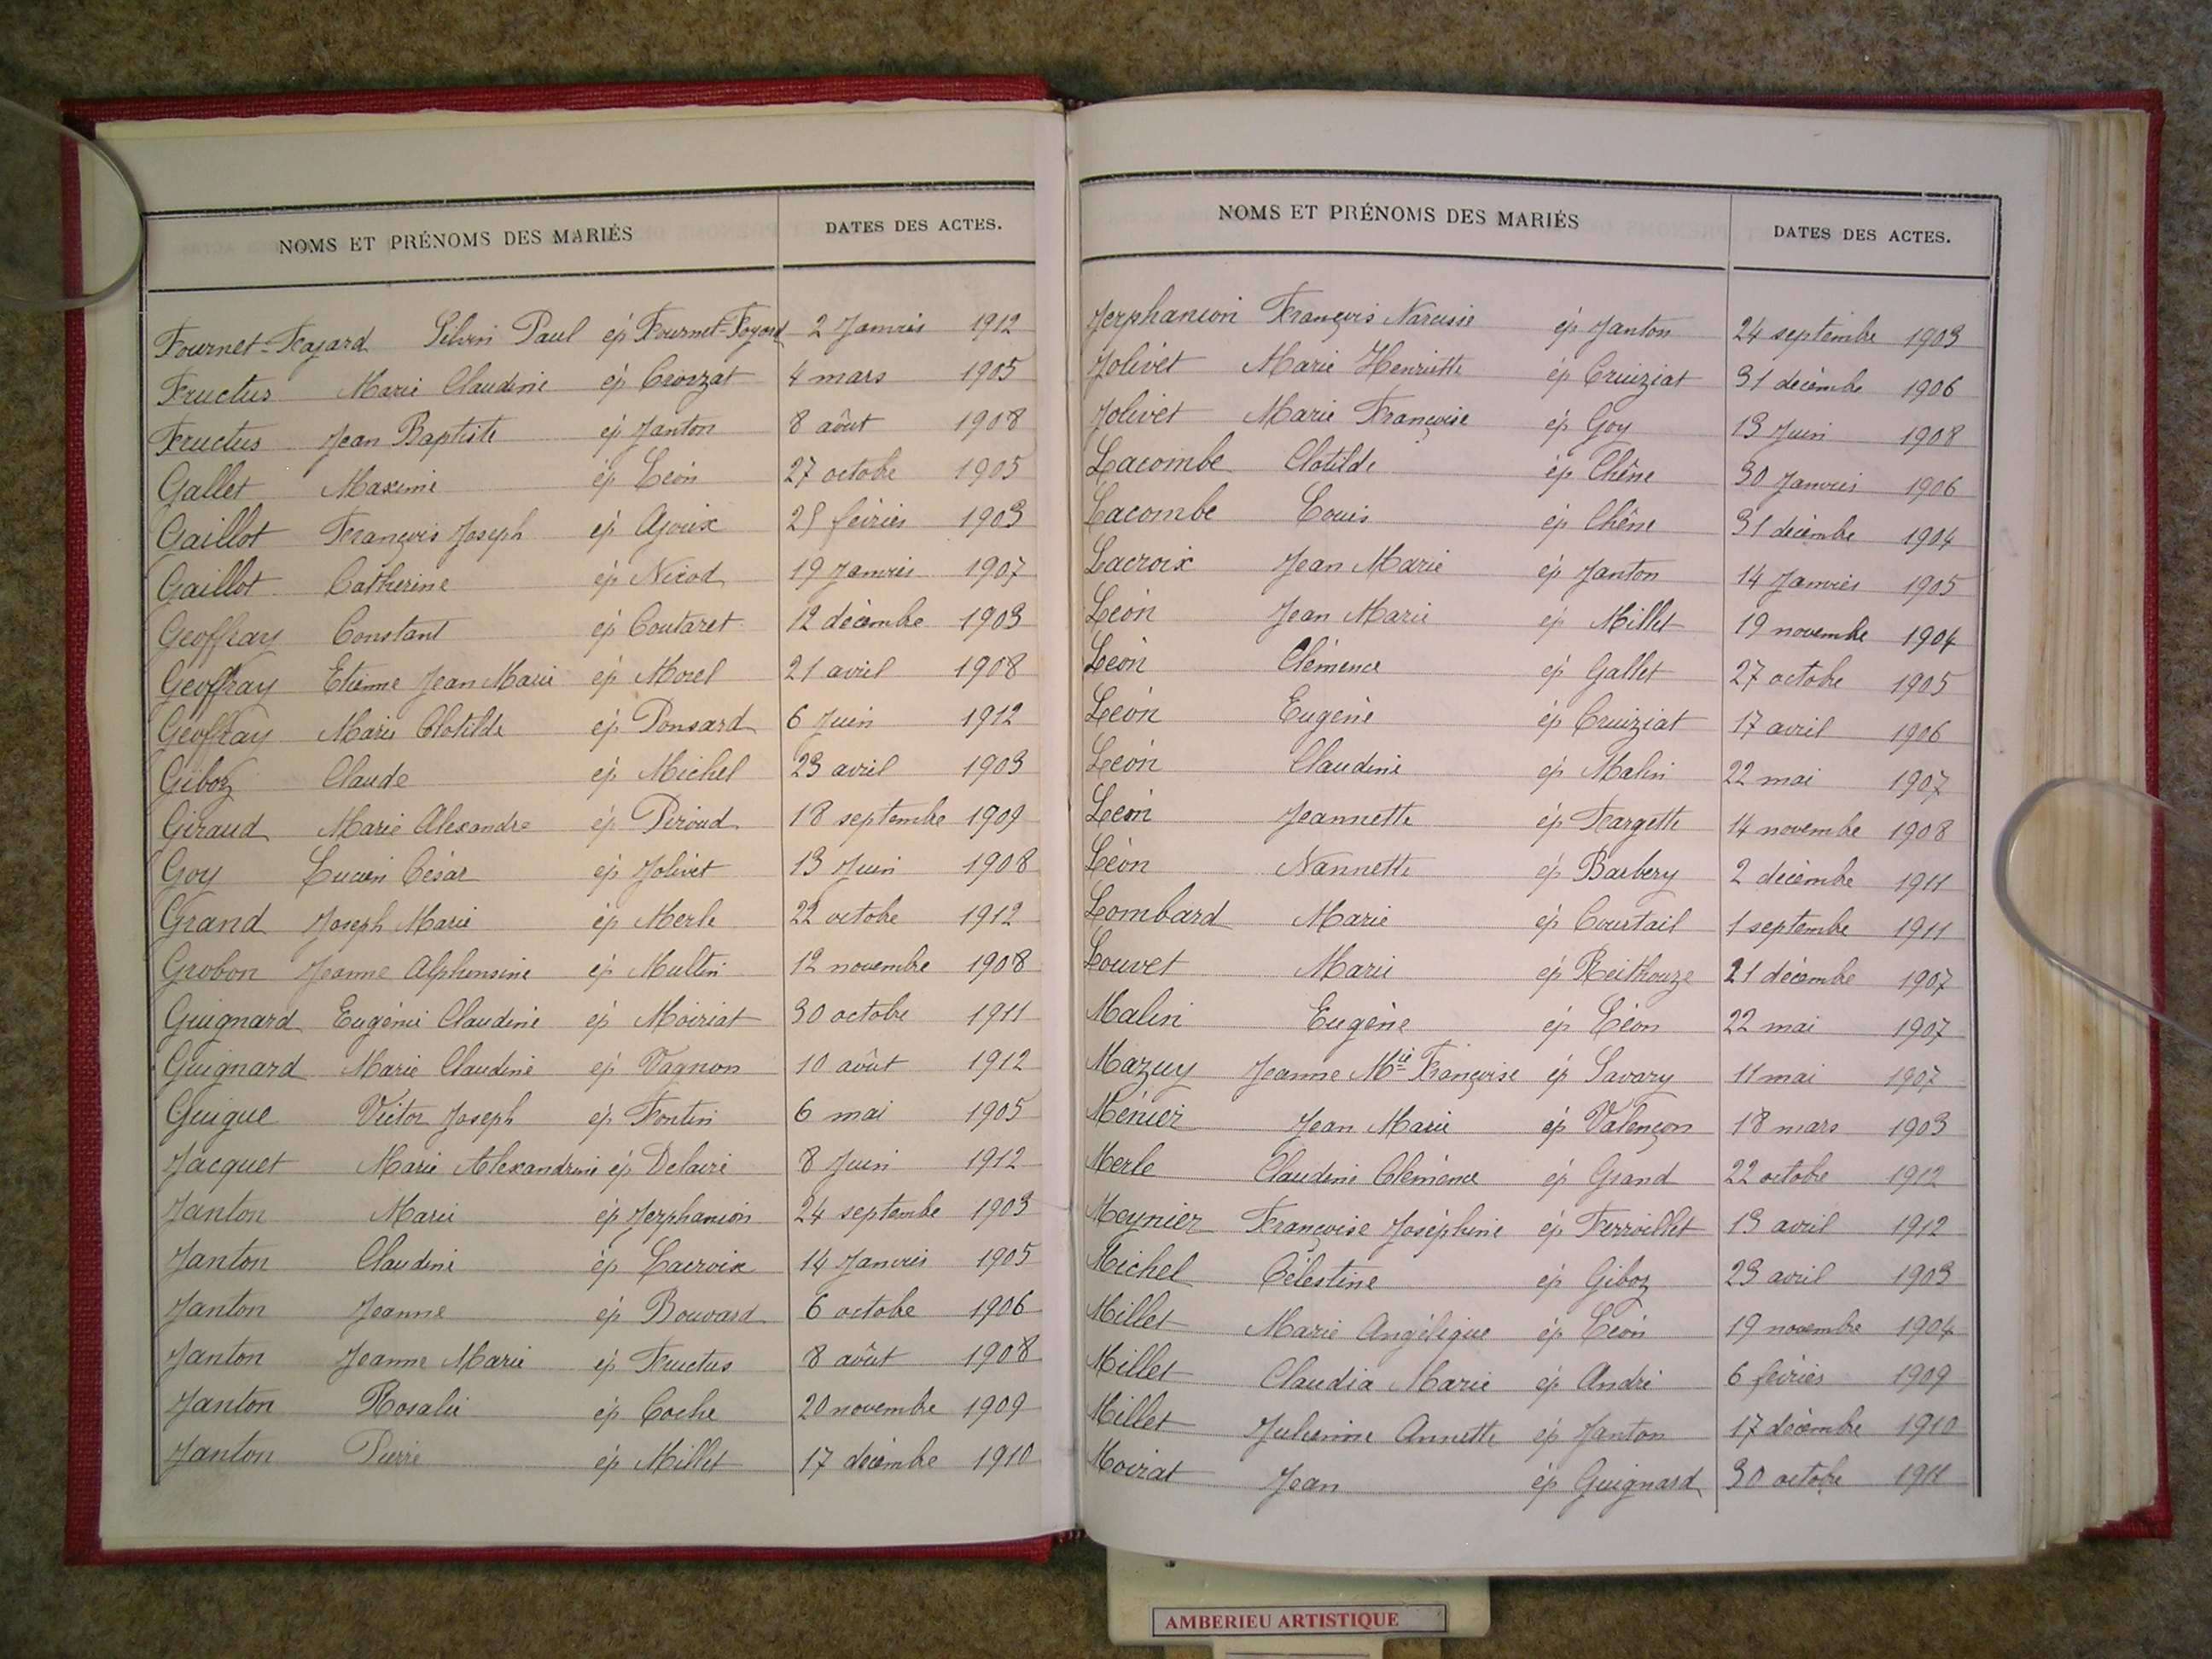 NOMS ET PRÉNOMS DES MARIÉS DATES DES ACTES.
Fournet-Fayard Silvin Paul ép Fournet-Fayard 2 Janvier 1912
Fructus Marie Claudine ép Crozat 4 mars 1905
Fructus Jean Baptiste ép Janton 8 août 1908
Gallet Maxime ép Léon 27 octobre 1905
Gaillot François Joseph ép Ajoux 25 février 1903
Gaillot Catherine ép Nicod 19 Janvier 1907
Geoffray Constant ép Coutaret 12 décembre 1903
Geoffray Etienne Jean Marie ép Morel 21 avril 1908
Geoffray Marie Clotilde ép Ponsard 6 Juin 1912
Giboz Claude ép Michel 23 avril 1903
Giraud Marie Alexandre ép Piroud 18 septembre 1909
Goy Lucien César ép Jolivet 13 Juin 1908
Grand Joseph Marie ép Merle 22 octobre 1912
Grobon Jeanne Alphonsine ép Multin 12 novembre 1908
Guignard Eugénie Claudine ép Moiriat 30 octobre 1911
Guignard Marie Claudine ép Vagnon 10 août 1912
Guigue Victor Joseph ép Fontin 6 mai 1905
Jacquet Marie Alexandrine ép Delaire 8 Juin 1912
Janton Marie ép Jerphanion 24 septembre 1903
Janton Claudine ép Lacroix 14 Janvier 1905
Janton Jeanne ép Bouvard 6 octobre 1906
Janton Jeanne Marie ép Fructus 8 août 1908
Janton Rosalie ép Coche 20 novembre 1909
Janton Pierre ép Millet 17 décembre 1910
NOMS ET PRÉNOMS DES MARIÉS DATES DES ACTES.
Jerphanion François Narcisse ép Janton 24 septembre 1903
Jolivet Marie Henriette ép Cruiziat 31 décembre 1906
Jolivet Marie Françoise ép Goy 13 Juin 1908
Lacombe Clotilde ép Chêne 30 Janvier 1906
Lacombe Louis ép Chêne 31 décembre 1904
Lacroix Jean Marie ép Janton 14 Janvier 1905
Léon Jean Marie ép Millet 19 novembre 1904
Léon Clémence ép Gallet 27 octobre 1905
Léon Eugène ép Cruiziat 17 avril 1906
Léon Claudine ép Malin 22 mai 1907
Léon Jeannette ép Fargette 14 novembre 1908
Léon Nannette ép Barbery 2 décembre 1911
Lombard Marie ép Courtail 1 septembre 1911
Louvet Marie ép Reithouze 21 décembre 1907
Malin Eugène ép Léon 22 mai 1907
Mazuy Jeanne Mie Françoise ép Savary 11 mai 1907
Ménier Jean Marie ép Valençon 18 mars 1903
Merle Claudine Clémence ép Grand 22 octobre 1912
Meynier Françoise Joséphine ép Ferroillet 13 avril 1912
Michel Célestine ép Giboz 23 avril 1903
Millet Marie Angélique ép Léon 19 novembre 1904
Millet Claudia Marie ép André 6 février 1909
Millet Julienne Annette ép Janton 17 décembre 1910
Moirat Jean ép Guignard 30 octobre 1911
AMBERIEU ARTISTIQUE